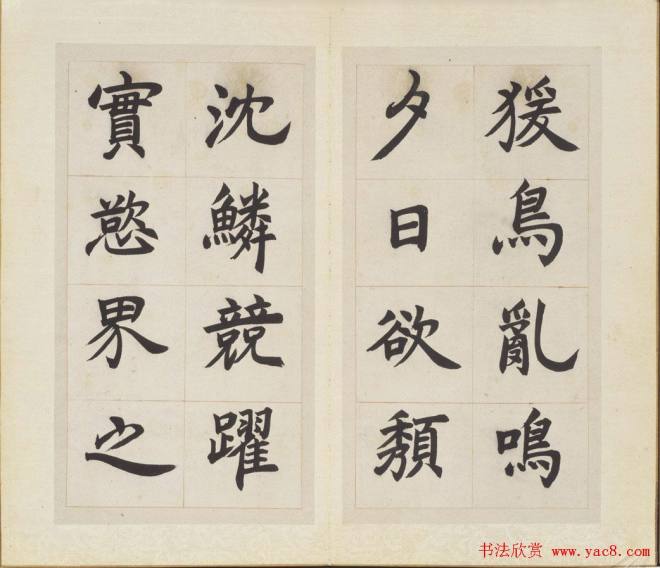 猨鳥亂鳴
夕日欲頹
沈鱗競躍
實慾界之
书法欣赏 www.yac8.com